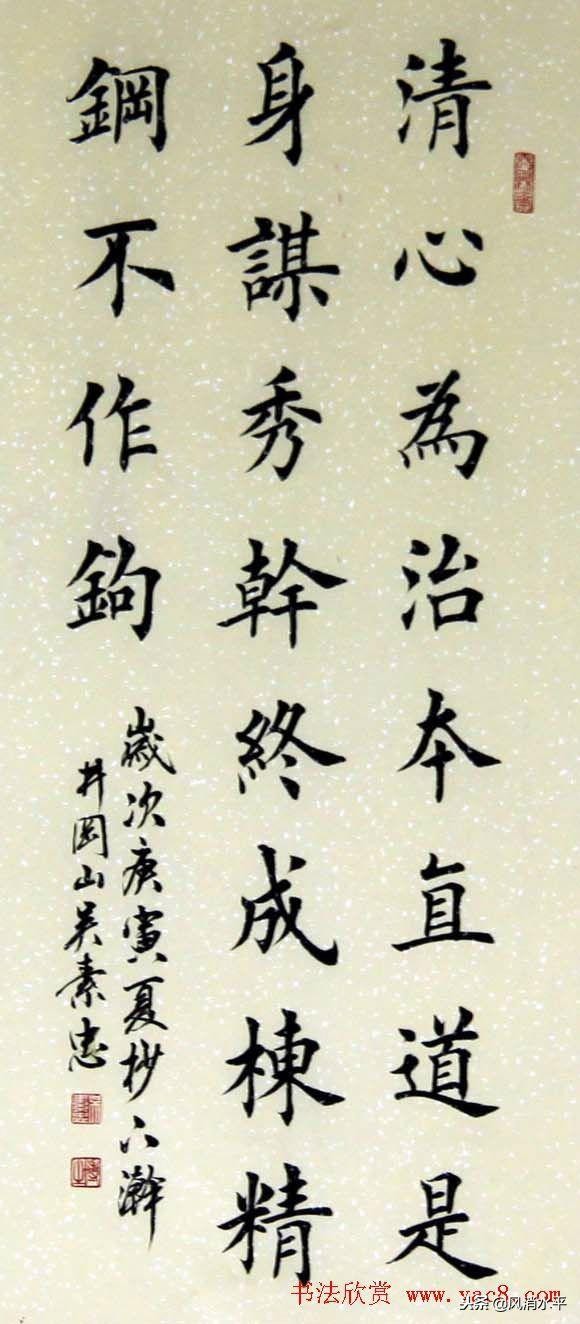 清心為治本直道是
身謀秀幹終成棟精
鋼不作鉤
歲次庚寅夏杪下澣
井岡山吳素忠
书法欣赏 www.yac8.com
头条@风消水平